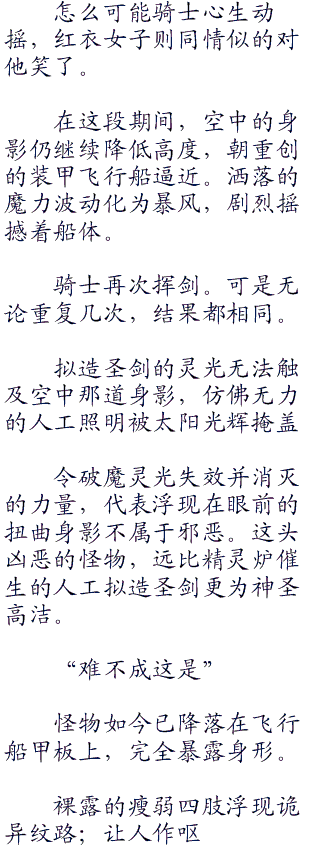 怎么可能骑士心生动
摇，红衣女子则同情似的对
他笑了。
在这段期间，空中的身
影仍继续降低高度，朝重创
的装甲飞行船逼近。洒落的
魔力波动化为暴风，剧烈摇
撼着船体。
骑士再次挥剑。可是无
论重复几次，结果都相同。
拟造圣剑的灵光无法触
及空中那道身影，仿佛无力
的人工照明被太阳光辉掩盖
令破魔灵光失效并消灭
的力量，代表浮现在眼前的
扭曲身影不属于邪恶。这头
凶恶的怪物，远比精灵炉催
生的人工拟造圣剑更为神圣
高洁。
“难不成这是”
怪物如今已降落在飞行
船甲板上，完全暴露身形。
裸露的瘦弱四肢浮现诡
异纹路；让人作呕